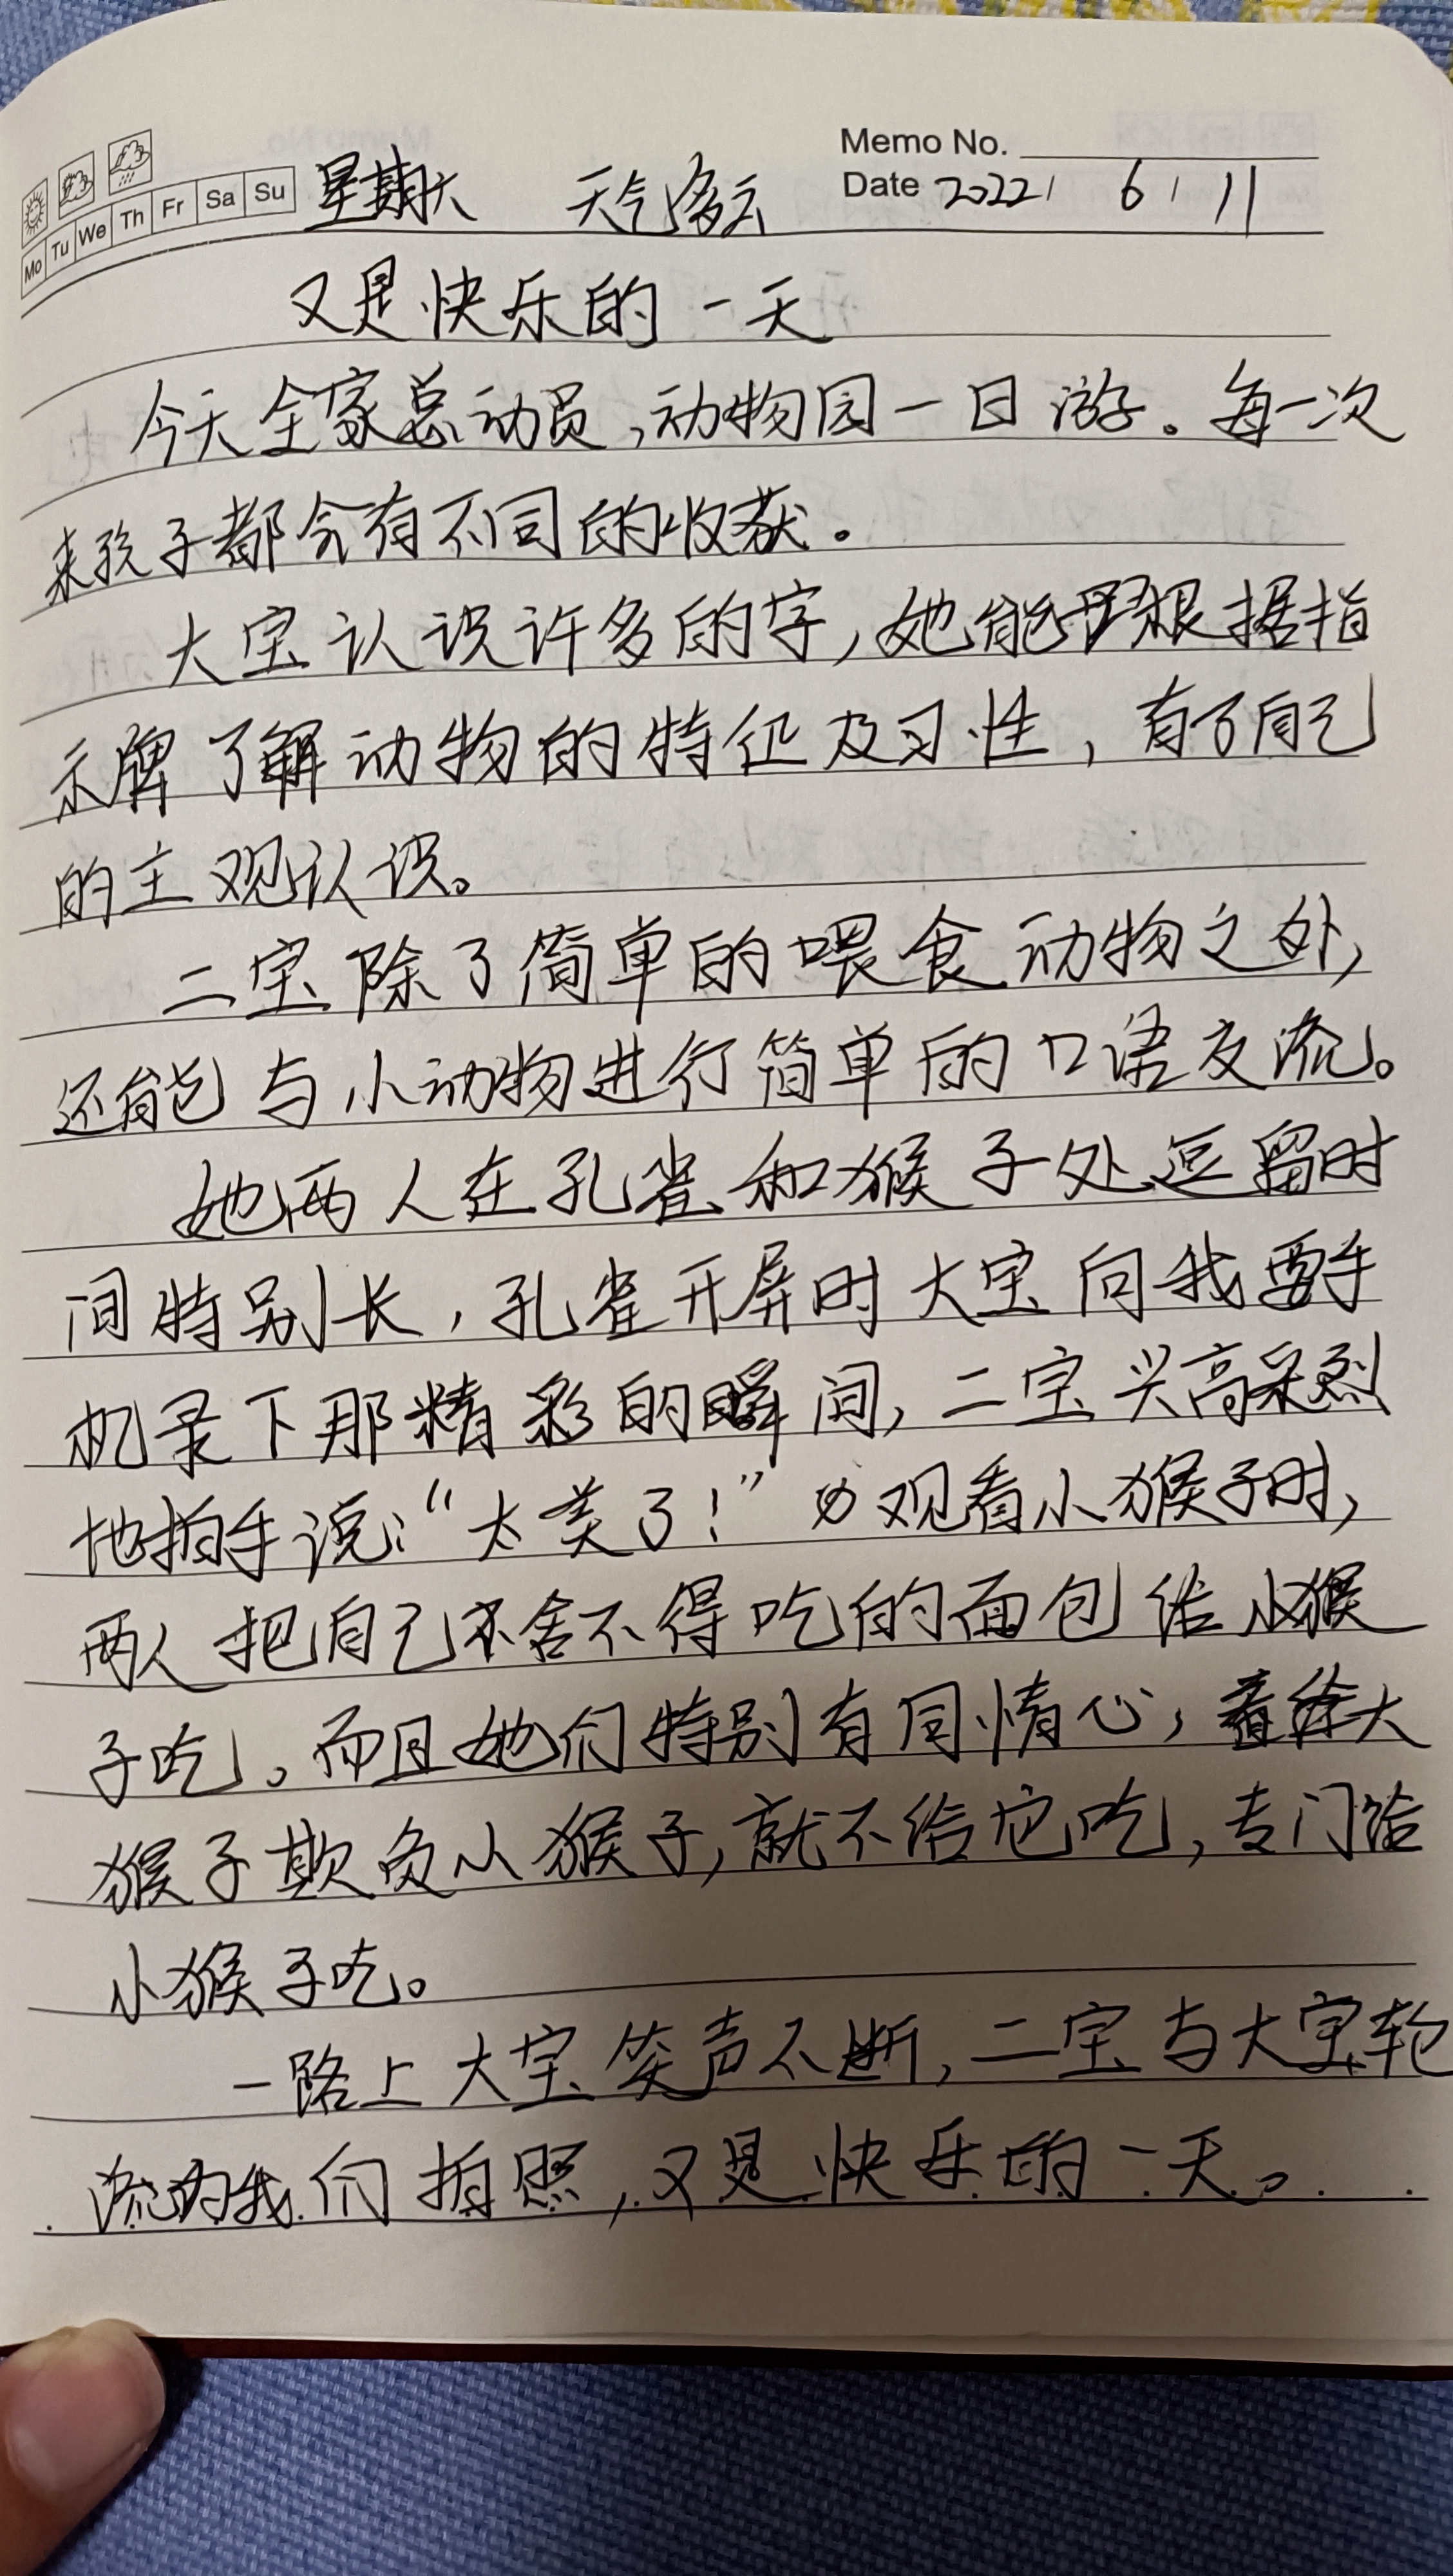 Memo No.
Mo Tu We Th Fr Sa Su 星期六 天气多云 Date 2022 / 6 / 11
又是快乐的一天
今天全家总动员,动物园一日游。每一次
来孩子都会有不同的收获。
大宝认识许多的字,她能根据指
示牌了解动物的特征及习性,有了自己
的主观认识。
二宝除了简单的喂食动物之外,
还能与小动物进行简单的口语交流。
她两人在孔雀和猴子处逗留时
间特别长,孔雀开屏时大宝向我要手
机录下那精彩的瞬间,二宝兴高采烈
地拍手说:“太美了!”观看小猴子时,
两人把自己不舍不得吃的面包给小猴
子吃。而且她们特别有同情心,看大
猴子欺负小猴子,就不给它吃,专门给
小猴子吃。
一路上大宝笑声不断,二宝与大宝轮
流为我们拍照,又是快乐的一天。